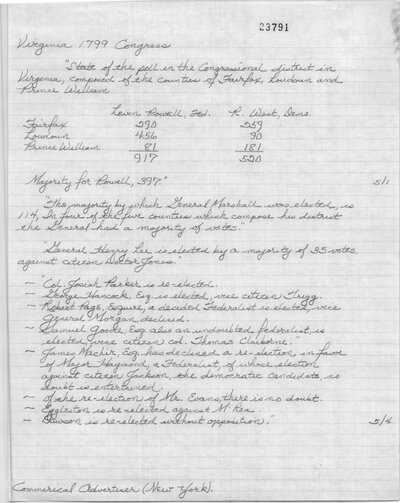 23791
Virginia 1799 Congress
"State of the poll in the Congressional district in
Virginia, composed of the counties of Fairfax, Loudoun and
Prince William
Leven Powell, Fed. R. West, Demo.
Fairfax 290 259
Loudoun 456 90
Prince William 81 181
917 520
Majority for Powell, 397" 5/1
"The majority by which General Marshall was elected, is
114, In four of the five counties which compose his district
the General had a majority of votes."
"General Henry Lee is elected by a majority of 35 votes,
against citizen Doctor Jones."
~ "Col. Josiah Parker is re-elected.
~ George Hancock, Esq. is elected, vice citizen Trigg.
~ Robert Page, Esquire, a decided Federalist is elected, vice
General Morgan, declined.
~ Samuel Goode, Esq. also an undoubted federalist, is
elected, vice citizen col. Thomas Claiborne."
~ "James Machir, Esq. has declined a re-election in favor
of Major Haymond, a Federalist, of whose election
against citizen Jackson, the democratic candidate, no
doubt is entertained.
~ Of the re-election of Mr. Evans, there is no doubt.
~ Eggleston is re-elected against M'Rea.
~ Dawson is re-elected without opposition." 5/4
Commerical Advertiser (New York).